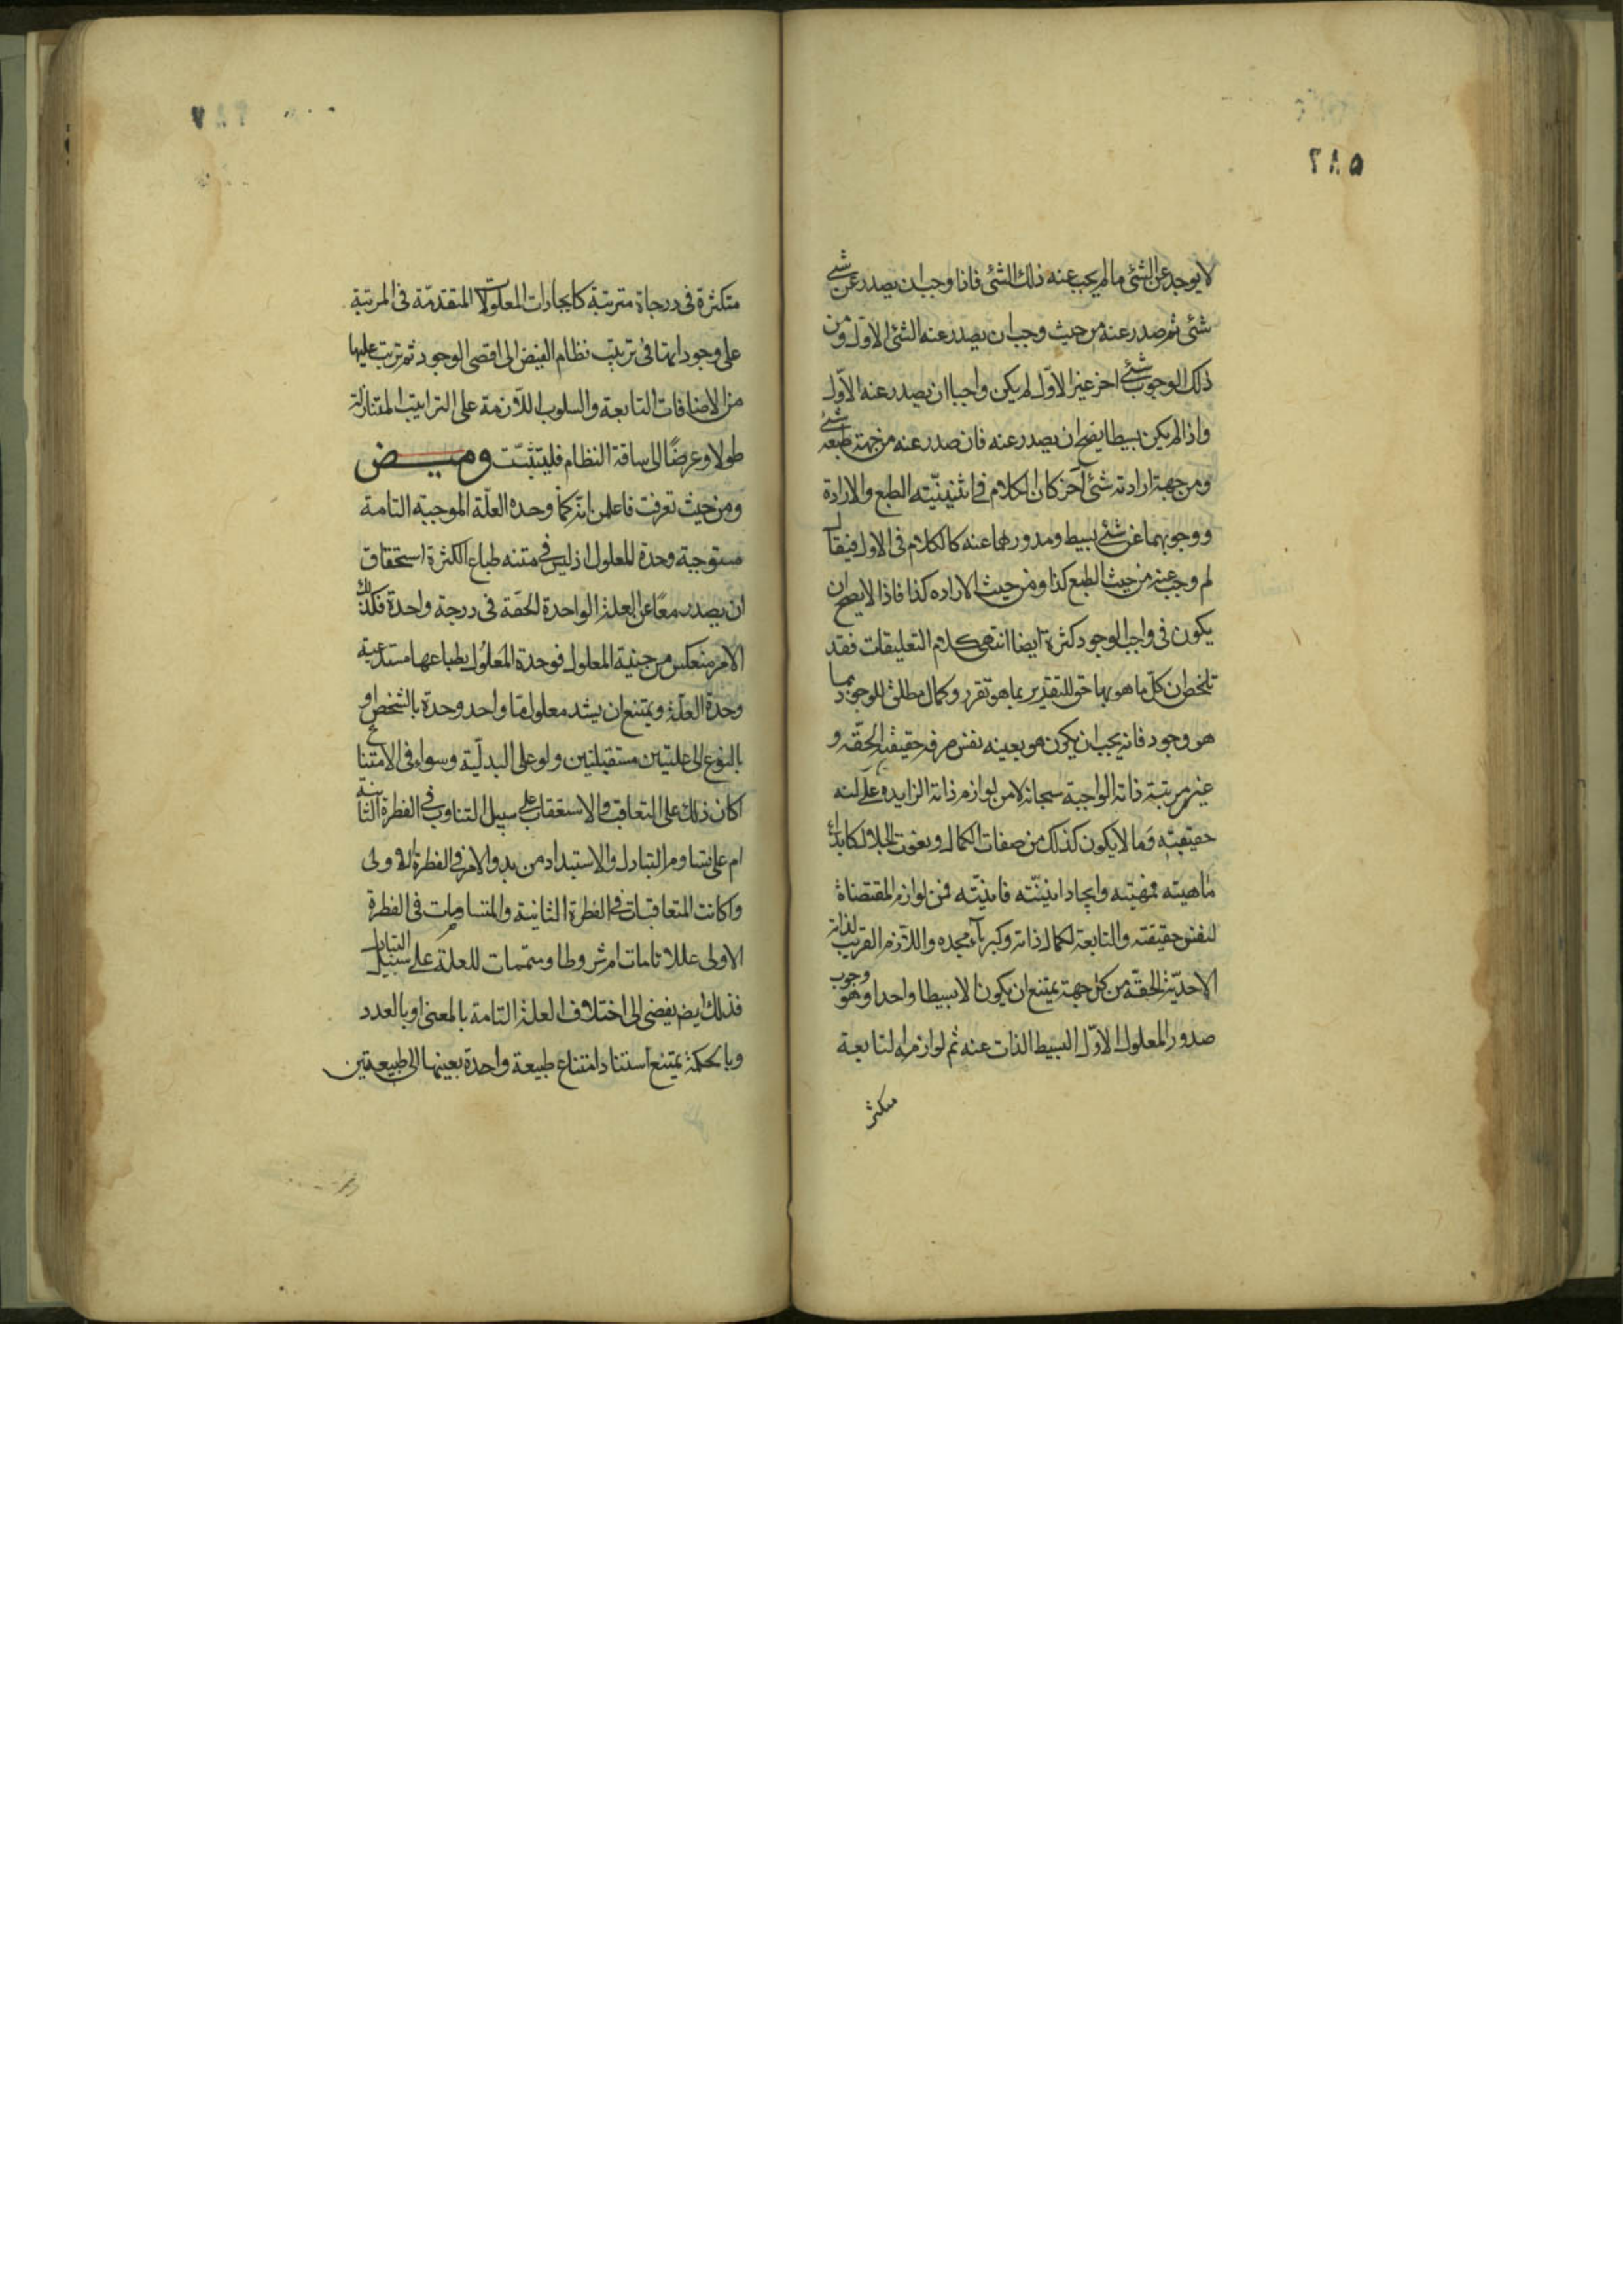 ۵۸۲
لا يوجد عن الشئ ما لم يجب عنه ذلك الشئ فاذا وجب ان يصدر عن شئ
شئ ثم صدر عنه من حيث وجب ان يصدر عنه الشئ الاول ومن
ذلك الوجوب شئ اخر غير الاول لم يكن واجبا ان يصدر عنه الاول
واذا لم يكن بسيطا يصح ان يصدر عنه فان صدر عنه من جهة طبعه شئ
ومن جهة ارادته شئ آخر كان الكلام فى اثنينيّته الطبع والارادة
ووجوبهما عن شئ بسيط وصدورهما عنه كالكلام فى الاول فيقال
لم وجب عنه من حيث الطبع كذا ومن حيث الاراده كذا فاذا لا يصح ان
يكون فى واجب الوجود كثرة ايضا انتهى كلام التعليقات فقد
تلخص ان كل ما هو بهاء حق للتقرر بما هو تقرر وكمال مطلق للوجود بما
هو وجود فانه يجب ان يكون هو بعينه نفس صرف حقيقته الحقّه و
عين مرتبة ذاته الواجبة سبحانه لا من لوازم ذاته الزايده على كنه
حقيقته وما لا يكون كذلك من صفات الكمال ونعوت الجلال كابداء
ماهيته فمهيته وايجاد انيّته فانيّته فمن لوازم المقتضاة
لنفس حقيقته والتابعة لكمال ذاته وكبرآء مجده واللازم القريب لذاته
الاحديّة الحقّة من كل جهة يمتنع ان يكون الا بسيطا واحدا وهو وجوب
صدور المعلول الاوّل البسيط الذات عنه ثم لوازمه التابعة
متكثر
متكثرة فى درجاة مترتبة كايجادات المعلولات المتقدمّة فى المرتبة
على وجوداتها فى ترتيب نظام الفيض الى اقصى الوجود ثم ترتب عليها
من الاضافات التابعة والسلوب اللازمة على الترابيب المتنازلة
طولا وعرضًا الى ساقة النظام فليتثبّت وميض
ومن حيث تعرفت فاعلمن انّه كما وحده العلّة الموجبة التامة
مستوجبة وحدة للمعلول اذ ليس فى متنه طباع الكثرة استحقاق
ان يصدر معًا عن العلة الواحدة الحقّة فى درجة واحدة فكذلك
الامر منعكس من جنبة المعلول فوحدة المعلول بطباعها مستدعية
وحدة العلّة ويمتنع ان يستند معلول ما واحد وحدة بالشخص او
بالنوع الى علتين مستقلتين ولو على البدليّة وسواء فى الامتناع
اكان ذلك على التعاقب والاستعقاب على سبيل التناوب فى الفطرة الثانية
ام على تساوم التبادل والاستبداد من بدو الامر فى الفطرة الاولى
واكانت المتعاقبات فى الفطرة الثانية والمتساومات فى الفطرة
الاولى عللا تامات ام شروطا ومتممات للعلة على سبيل التبادل
فذلك ايضم يفضى الى اختلاف العلة التامة بالمعنى او بالعدد
وبالحكمة يمتنع استناد امتناع طبيعة واحدة بعينها الى طبيعتين